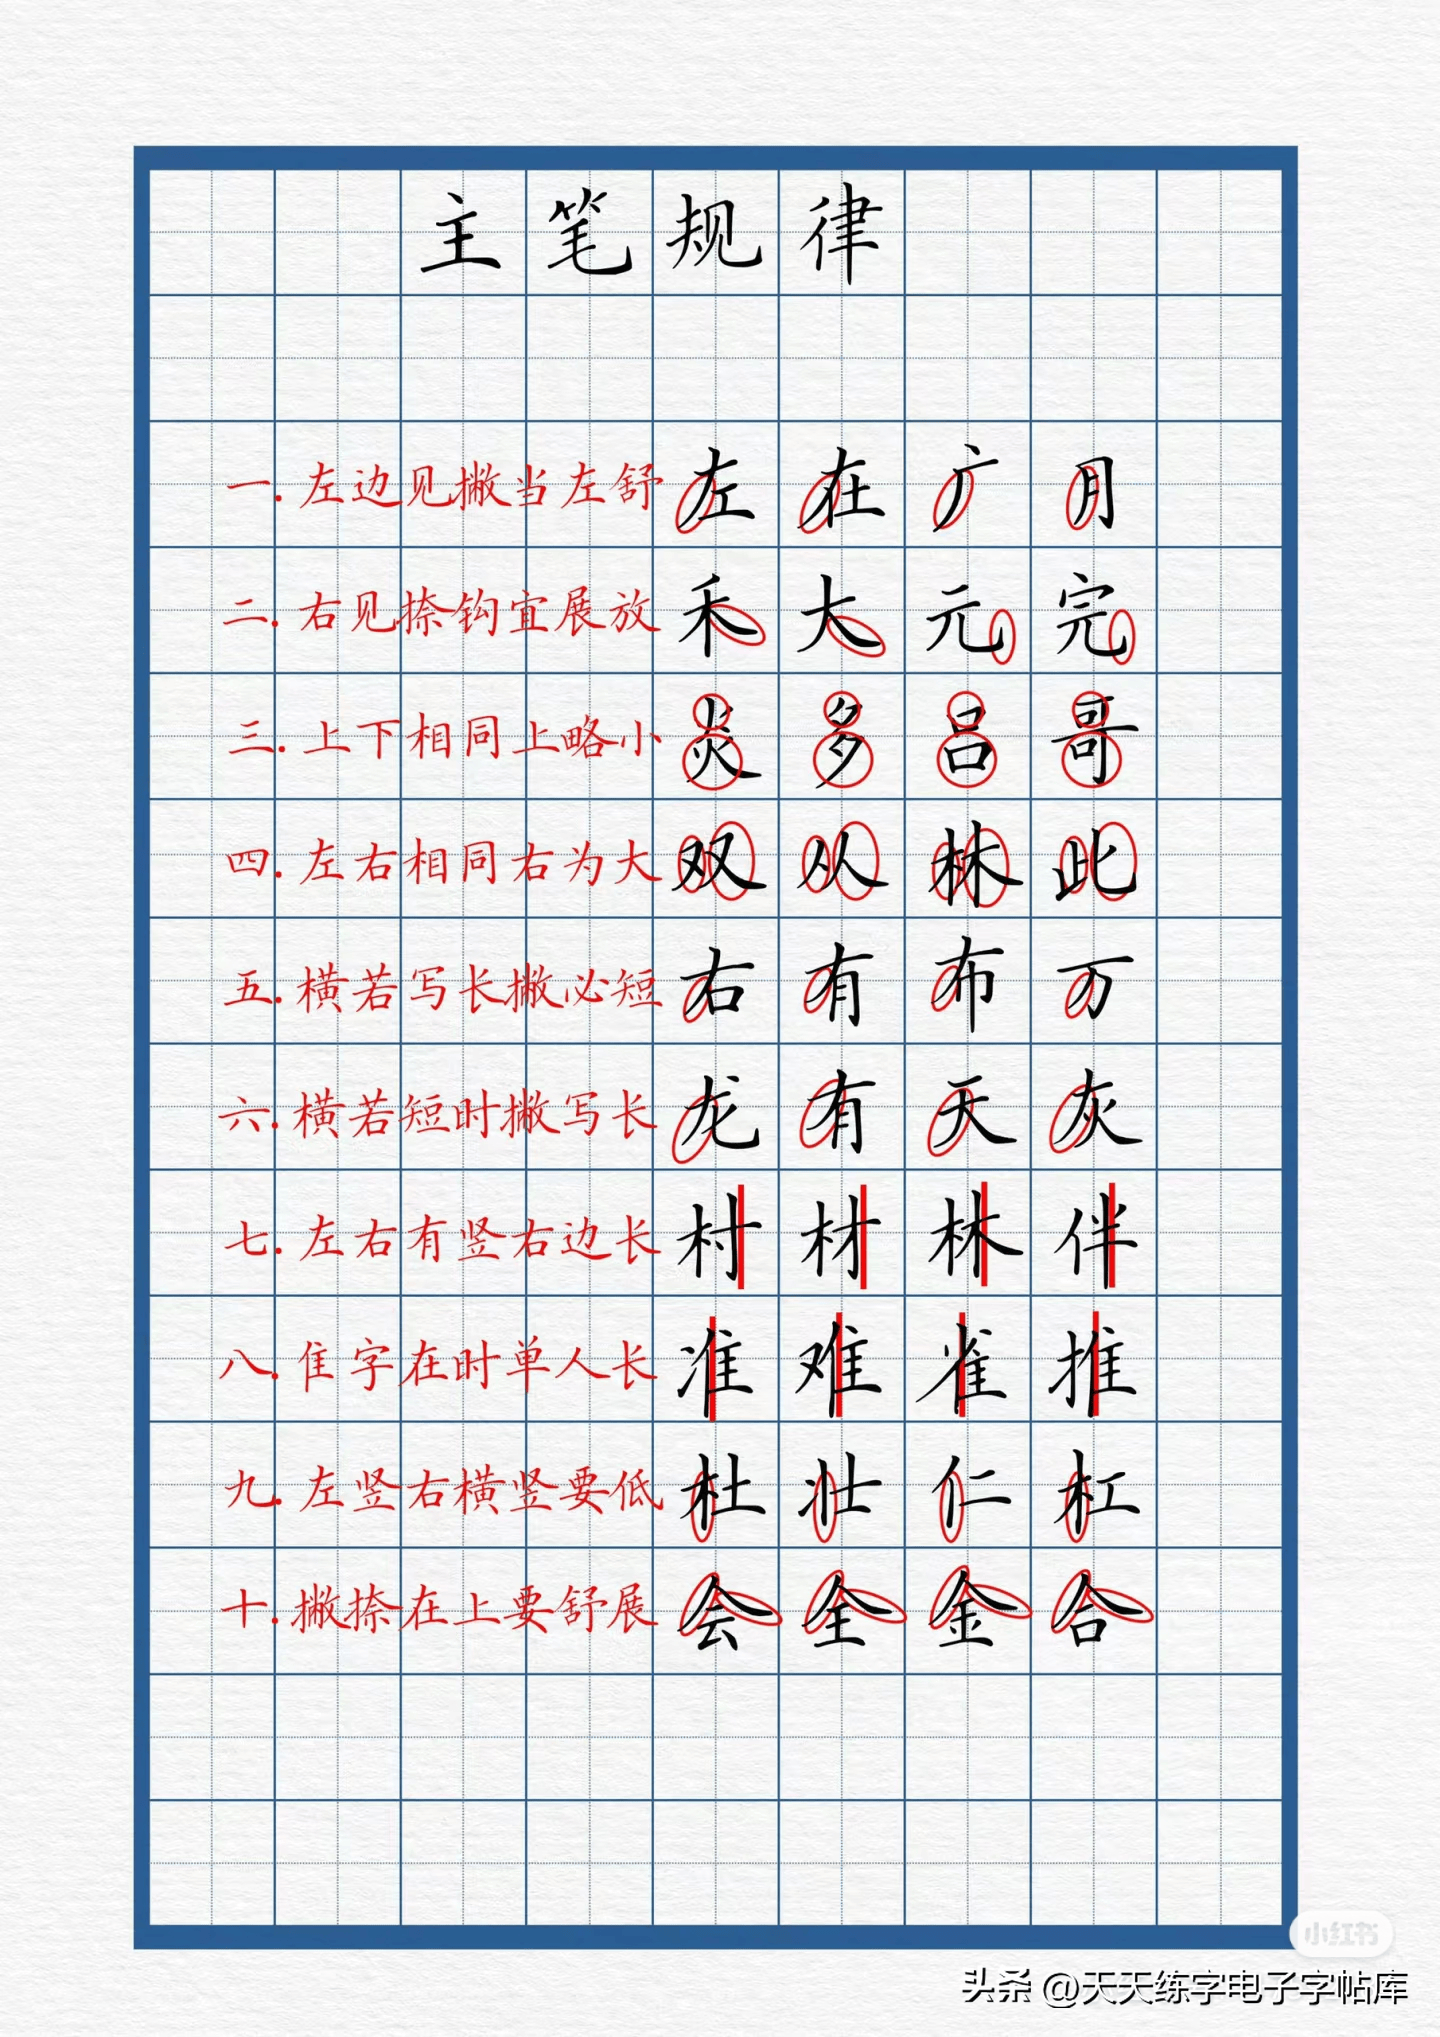 主笔规律
一.左边见撇当左舒 左 在 广 月
二.右见捺钩宜展放 禾 大 元 完
三.上下相同上略小 炎 多 吕 哥
四.左右相同右为大 双 从 林 此
五.横若写长撇必短 右 有 布 万
六.横若短时撇写长 龙 有 天 灰
七.左右有竖右边长 村 材 林 伴
八.隹字在时单人长 准 难 雀 推
九.左竖右横竖要低 杜 壮 仁 杠
十.撇捺在上要舒展 会 全 金 合
小红书
头条 @天天练字电子字帖库